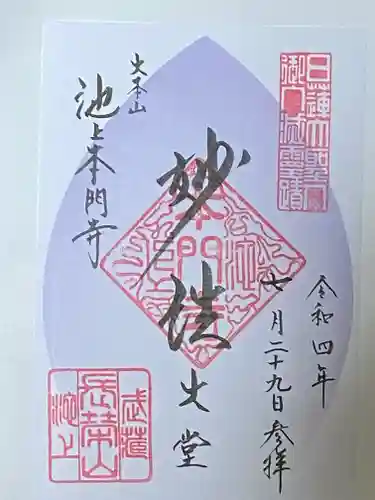 日蓮大聖人
御入滅霊蹟
令和四年
七月二十九日参拝
妙法
大堂
大本山
池上本門寺
武蔵
長栄山
池上